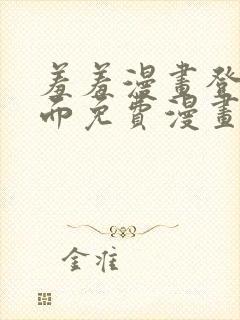 羞羞漫畫登
而免費漫畫
金准